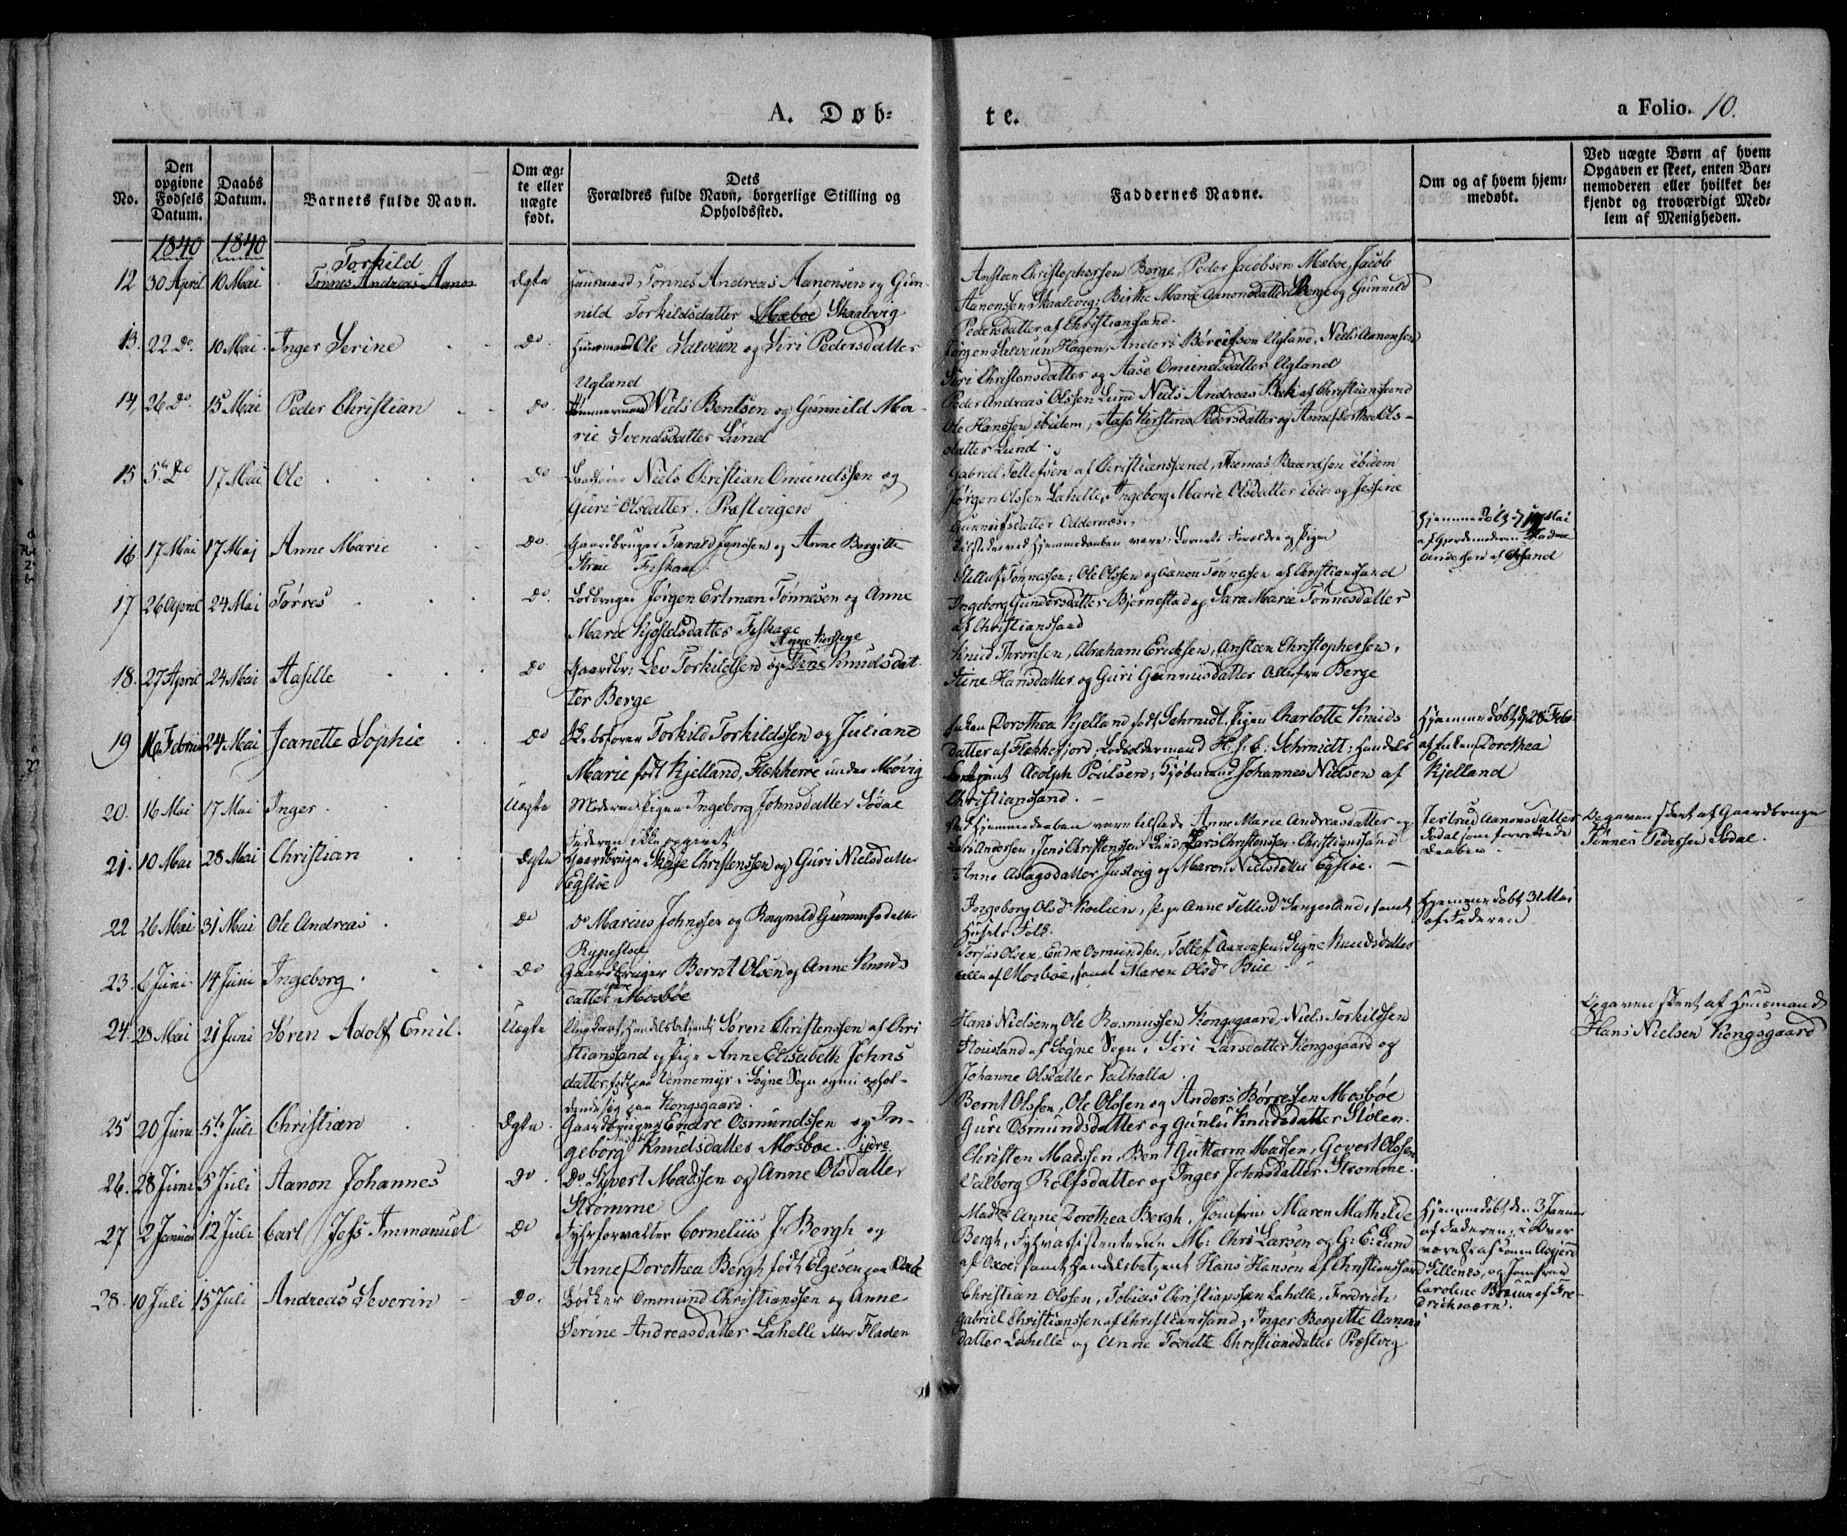 A. Døb-
te.
a Folio. 10.
No.
Den opgivne Fødsels Datum.
Daabs Datum.
Barnets fulde Navn.
Om ægte eller uægte født.
Dets Forældres fulde Navn, borgerlige Stilling og Opholdssted.
Faddernes Navne.
Om og af hvem hjemmedøbt.
Ved uægte Børn af hvem Opgaven er skeet, enten Barnemoderen eller hvilket bekjendt og troværdigt Medlem af Menigheden.
1840 1840
12 30 April 10 Mai Torkild Tønnes Andreas Aanon Ægte Huusmand Tønnes Andreas Aanonsen og Gunnild Torkildsdatter Mæboe Skaalevig
Ansteen Christophersen Berge, Peder Jacobsen Mæboe, Jacob
Aanonsen Skaalevig, Birthe Marie Aanonsdatter Berge og Gunnild
Pedersdatter af Christiansand.
13. 22 Do. 10 Mai. Inger Serine Do. Huusmand Ole Salvesen og Siri Pedersdatter
Ugland
Jørgen Salvesen Hagen, Anders Børresen Ugland, Niels Aanonsen
Siri Christensdatter og Aase Omundsdatter Ugland
14, 26 Do. 15 Mai Peder Christian Do. Tømmermand Niels Bentsen og Gunnild Marie Svendsdatter Lund
Peder Andreas Olssen Lund Niels Andreas Bek af Christiansand
Ole Hanssen ibidem, Aase Kirstine Pedersdatter og Anne Dorthea Olsdatter Lund.
15 5te Do 17 Mai Ole Do Niels Christian Omundssen og
Guri Olsdatter. Præstvigen
Gabriel Tellefsen af Christianssand, Thomas Baardsen ibidem
Jørgen Olssen Lahelle, Ingeborg Marie Olsdatter ibid. og Josine
Gunneufsdatter Oddernæs.
16 17 Mai 17 Mai Anne Marie Do. Gaardbruger Tarald Jensen og Anne Borgitte
Strai
Tilstede ved Hjemmedaaben vare: Barnets Forældre og Pigen
Hjemmedøbt 17 Mai
af Gjordemoderen Madme
Andersen af Chsand
17 26 April 24 Mai Tørres Do. Lodbruger Jørgen Ertman Tønnesen og Anne
Marie Kjostelsdatter Fiskaae
Tellef Tønnessen; Ole Olssen og Aanon Tønnessen af Christiansand
Ingeborg Gundersdatter Bjørnestad og Sara Marie Tønnesdatter
af Christianssand
18. 27 April 24 Mai Aasille Do Gaardbr: Lev Torkildsen og Anne Kirstine Stine Knudsdatter Berge
Knud Thronsen, Abraham Ericksen, Ansteen Christophersen,
Stine Hansdatter og Guri Gunnufsdatter Alle fra Berge
19 16 Februar 24 Mai Jeanette Sophie Do Torkild Torkildssen og Juliane
Marie født Kjelland, Flekkerøe under Møvig
Enken Dorothea Kjelland født Schmidt. Pigen Charlotte Knudsdatter af Flekkefjord, Lodsoldermand H. J. C. Schmidt; Handelsbetjent Adolph Poulsen, Kjøbmand Johannes Nielsen af
Christiansand.
Hjemmedøbt d. 28 Feb.
af Enken Dorothea
Kjelland
20. 16 Mai 17 Mai Inger. Uægte Moderen Pigen Ingeborg Johnsdatter Sødal
Faderen ikke opgivet
Ved Hjemmedaaben vare tilstede Anne Marie Andreasdatter og
Tertrud Aanonsdatter
Sødal som forrettede
Daaben.
Opgaven skeet af Gaardbruger
Tønnes Pedersen Sødal.
21. 10 Mai 28 Mai Christian Ægte Gaardbruger Christenssen og Guri Nielsdatter
Egsløe
Jens Christenssen Lund, Lars Christenssen Christianssand
Anne Aslagsdatter Justvig og Maren Nielsdatter Egsløe.
22 26 Mai 31 Mai Ole Andreas Do Do Marius Johnssen og Ragnild Gunnufsdatter
Rypestøl
Ingeborg Olsd. Kolien, Pige Anne Tellefsd. Langeland, samt
Husets Folk.
Hjemmedøbt 31 Mai
af Faderen
23. 6 Juni 14 Juni Ingeborg. Do Gaardbruger Bernt Olsen og Anne Knudsdatter Mosbøe
Torjus Olsen, Endre Osmundsen, Tellef Aanonsen, Signe Knudsdatter
alle af Mosbøe, samt Maren Olsd. Bue.
24. 28 Mai 21 Juni Søren Adolf Emil. Uægte Ungkarl, Handelsbetjent Søren Christenssen af Christiansand og Pige Anne Elisabeth Johnsdatter, født paa Vennemyr i Søgne Sogn og nu opholdende sig paa Kongsgaard.
Hans Nielsen og Ole Rasmussen Kongsgaard, Niels Torkildsen
Stousland af Søgne Sogn, Siri Larsdatter Kongsgaard og
Johanne Olsdatter Valhalla.
Opgaven skeet af Huusmand
Hans Nielsen Kongsgaard
25 20 Juni 5te Juli Christian Ægte. Gaardbruger Endre Osmundssen og Ingeborg Knudsdatter Mosboe. Ydre
Bernt Olssen, Ole Olssen og Anders Børresen Mosbøe
Guri Osmundsdatter og Gunlu Knudsdatter Stølen.
26. 28 Juni 5 Juli Aanon Johannes Do. Do. Syvert Madssen og Anne Olsdatter
Strømme
Christen Madssen, Bent Guttorm Madsen, Govert Olssen
Valborg Rolfsdatter og Inger Johnsdatter Strømme.
27 2 Januar 12 Juli Carl Jess Immanuel Do Fyrforvalter Cornelius J. Bergh og
Anne Dorothea Bergh født Elgesen paa Oxøe
Madme Anne Dorothea Bergh, Jomfrue Maren Mathilde
Bergh, Fyrassistenterne M: Chr: Larsen og G: E: Lund
af Oxøe, samt Handelsbetjent Hans Hansen af Christianssand
Hjemmedøbt den 3 Januar
af Faderen, i Overværelse af
Tellenes, og Jomfrue
Caroline Bruun af Fredrichsværn.
28. 10 Juli 15 Juli Andreas Severin Do. Bødker Ommund Christianssen og Anne
Serine Andreasdatter Lahelle eller Fladen
Christian Olssen, Tobias Christianssen Lahelle, Fredrich
Gabriel Christianssen af Christianssand, Inger Bergitte Aanonsdatter Lahelle og Anne Tomette Christiansdatter Præstvig